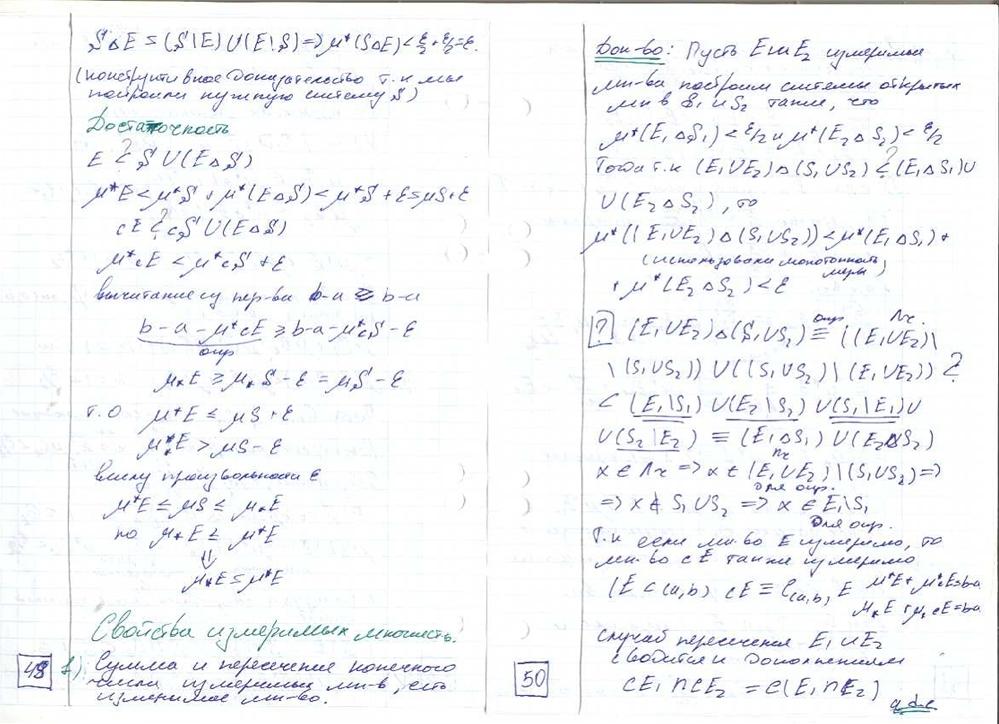 S Δ E ≤ (S \ E) ∪ (E \ S) => μ*(SΔE) < ε/2 + ε/2 = ε.
(конструктивное доказательство т.к мы
построили нужную систему S)
Достаточность
E ⊂? S ∪ (E Δ S)
μ*E < μ*S + μ*(EΔS) < μ*S + ε ≤ μS + ε
cE ⊂? cS ∪ (EΔS)
μ*cE < μ*cS + ε
вычитание из нер-ва b-a ≥ b-a
b - a - μ*cE ≥ b-a - μ*cS - ε
опр
μ⁎E ≥ μ⁎S - ε = μS - ε
т.о μ*E ≤ μS + ε
μ⁎E > μS - ε
ввиду произвольности ε
μ*E ≤ μS ≤ μ⁎E
но μ⁎E ≥ μ*E
⇓
μ⁎E ≤ μ*E
Свойства измеримых множеств.
1). Сумма и пересечение конечного
числа измеримых мн-в, есть
измеримое мн-во.
49
Док-во: Пусть E₁ и E₂ измеримые
мн-ва построим системы открытых
мн-в S₁ и S₂ такие, что
μ*(E₁ Δ S₁) < ε/2 и μ*(E₂ Δ S₂) < ε/2
Тогда т.к (E₁∪E₂) Δ (S₁∪S₂) ⊂? (E₁ΔS₁) ∪
∪ (E₂ Δ S₂), то
μ*((E₁∪E₂) Δ (S₁∪S₂)) < μ*(E₁ΔS₁) +
(использовали монотонность
меры)
+ μ*(E₂ΔS₂) < ε
? (E₁∪E₂)Δ(S₁∪S₂) ≡опр ((E₁∪E₂) \ Лч.
\ (S₁∪S₂)) ∪ ((S₁∪S₂) \ (E₁∪E₂)) ?
⊂ (E₁\S₁) ∪ (E₂\S₂) ∪ (S₁\E₁) ∪
∪ (S₂\E₂) ≡ (E₁ΔS₁) ∪ (E₂ΔS₂)
пч
x ∈ Лч => x ∈ (E₁∪E₂) \ (S₁∪S₂) =>
Для опр.
=> x ∉ S₁∪S₂ => x ∈ E₁\S₁
Для опр.
Т.к если мн-во E измеримо, то
мн-во cE также измеримо
(E ⊂ (a,b) cE ≡ C(a,b) E μ*E + μ*cE = b-a
μ⁎E + μ⁎cE = b-a
случай пересечения E₁ и E₂
сводится к дополнениям
CE₁ ∩ CE₂ = C(E₁∩E₂)
q.d.e
50